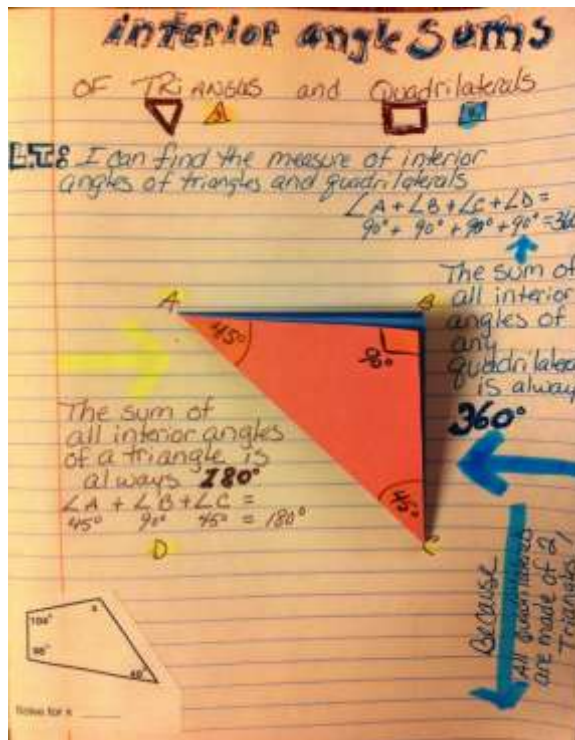 interior angle Sums
OF TRiANGLES and Quadrilaterals
L.T: I can find the measure of interior
angles of triangles and quadrilaterals
∠A + ∠B + ∠C + ∠D =
90° + 90° + 90° + 90° = 360
The sum of
all interior
angles of
any
quadrilateral
is always
360°
A
B
45°
90°
45°
C
D
The sum of
all interior angles
of a triangle is
always 180°
∠A + ∠B + ∠C =
45° 90° 45° = 180°
Because
All quadrilaterals
are made of 2
Triangles!
x
Solve for x